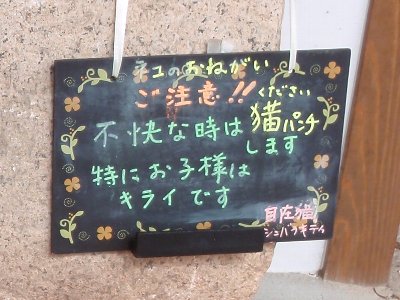 ネコのおねがい
ご注意!!ください
不快な時は猫パンチ
します
特にお子様は
キライです
自在猫
シュバラキティ